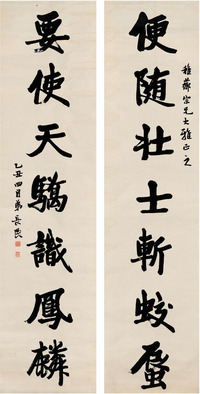 便随壮士斬蛟蜃
穉薌宗兄大雅正之
要使天驕識鳳麟
乙丑四月弟長民